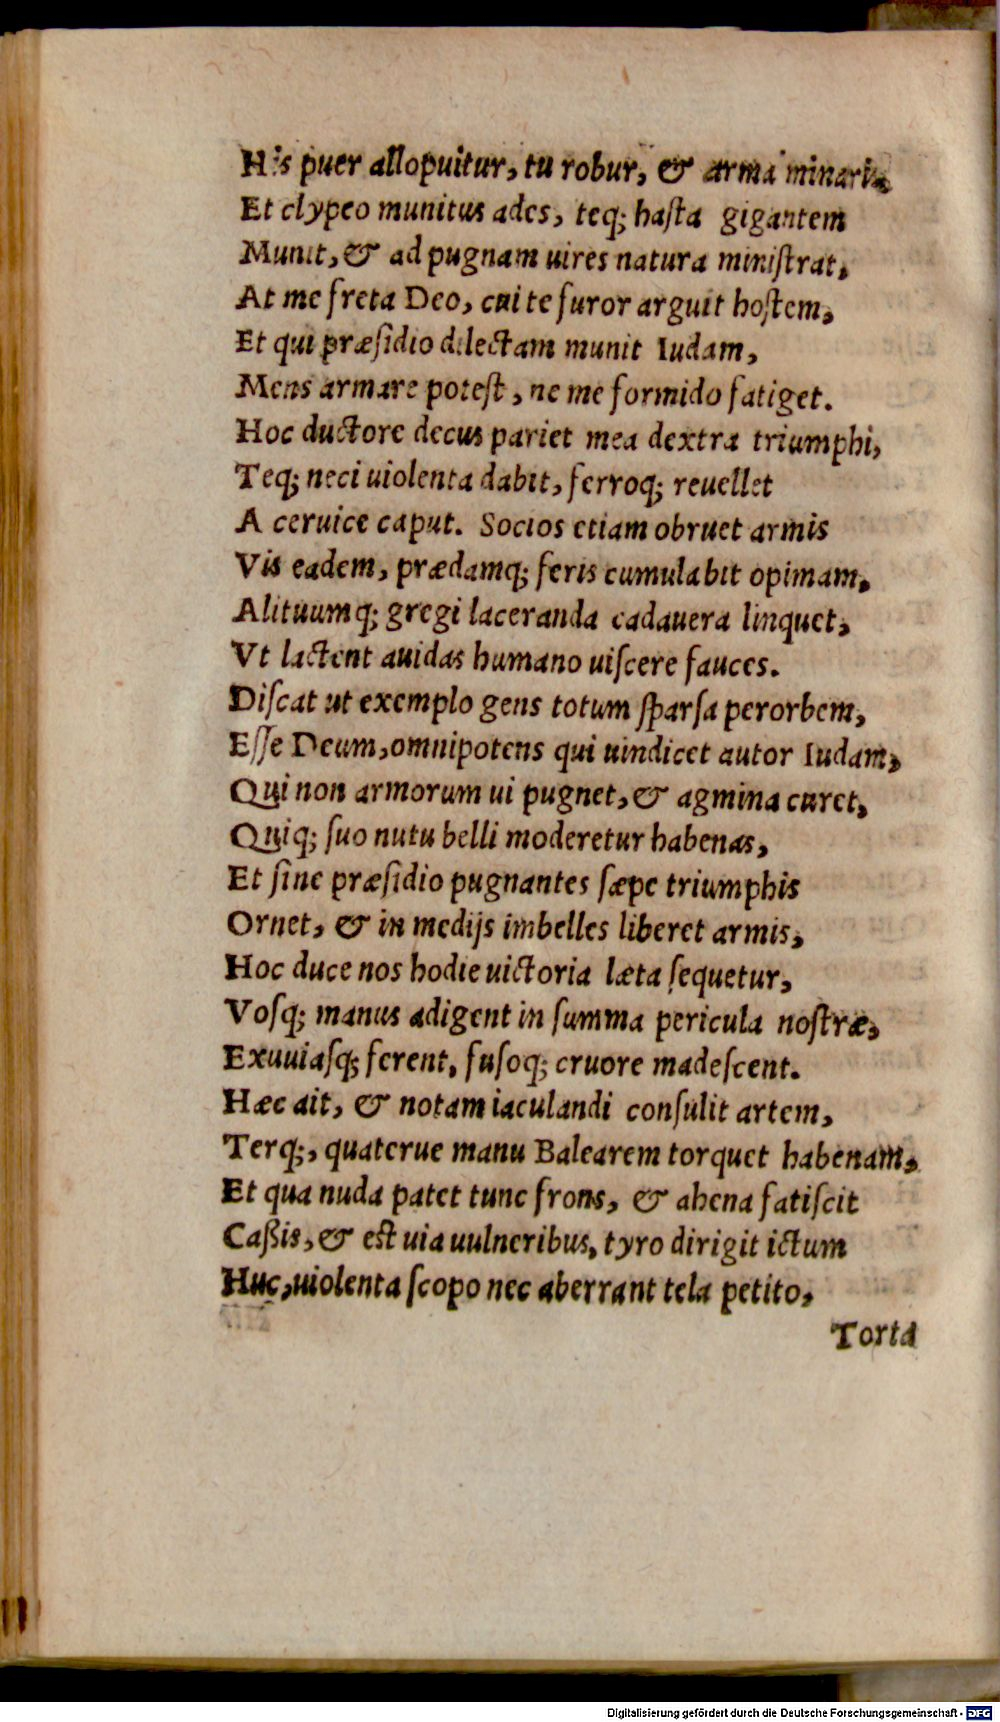 His puer alloquitur, tu robur, & arma minaris,
Et clypeo munitus ades, teq; haſta gigantem
Munit, & ad pugnam uires natura miniſtrat,
At me freta Deo, cui te furor arguit hoſtem,
Et qui præſidio dilectam munit Iudam,
Mens armare poteſt, ne me formido fatiget.
Hoc ductore decus pariet mea dextra triumphi,
Teq; neci uiolenta dabit, ferroq; reuellet
A ceruice caput. Socios etiam obruet armis
Vis eadem, prædamq; feris cumulabit opimam,
Alituumq; gregi laceranda cadauera linquet,
Vt lactent auidas humano uiſcere fauces.
Diſcat ut exemplo gens totum ſparſa perorbem,
Eſſe Deum, omnipotens qui uindicet autor Iudam,
Qui non armorum ui pugnet, & agmina curet,
Quiq; ſuo nutu belli moderetur habenas,
Et ſine præſidio pugnantes ſæpe triumphis
Ornet, & in medijs imbelles liberet armis,
Hoc duce nos hodie uictoria læta ſequetur,
Vosq; manus adigent in ſumma pericula noſtræ,
Exuuiasq; ferent, fuſoq; cruore madeſcent.
Hæc ait, & notam iaculandi conſulit artem,
Terq;, quaterue manu Balearem torquet habenam,
Et qua nuda patet tunc frons, & ahena fatiſcit
Caßis, & eſt uia uulneribus, tyro dirigit ictum
Huc, uiolenta ſcopo nec aberrant tela petito,
Torta
Digitalisierung gefördert durch die Deutsche Forschungsgemeinschaft - DFG